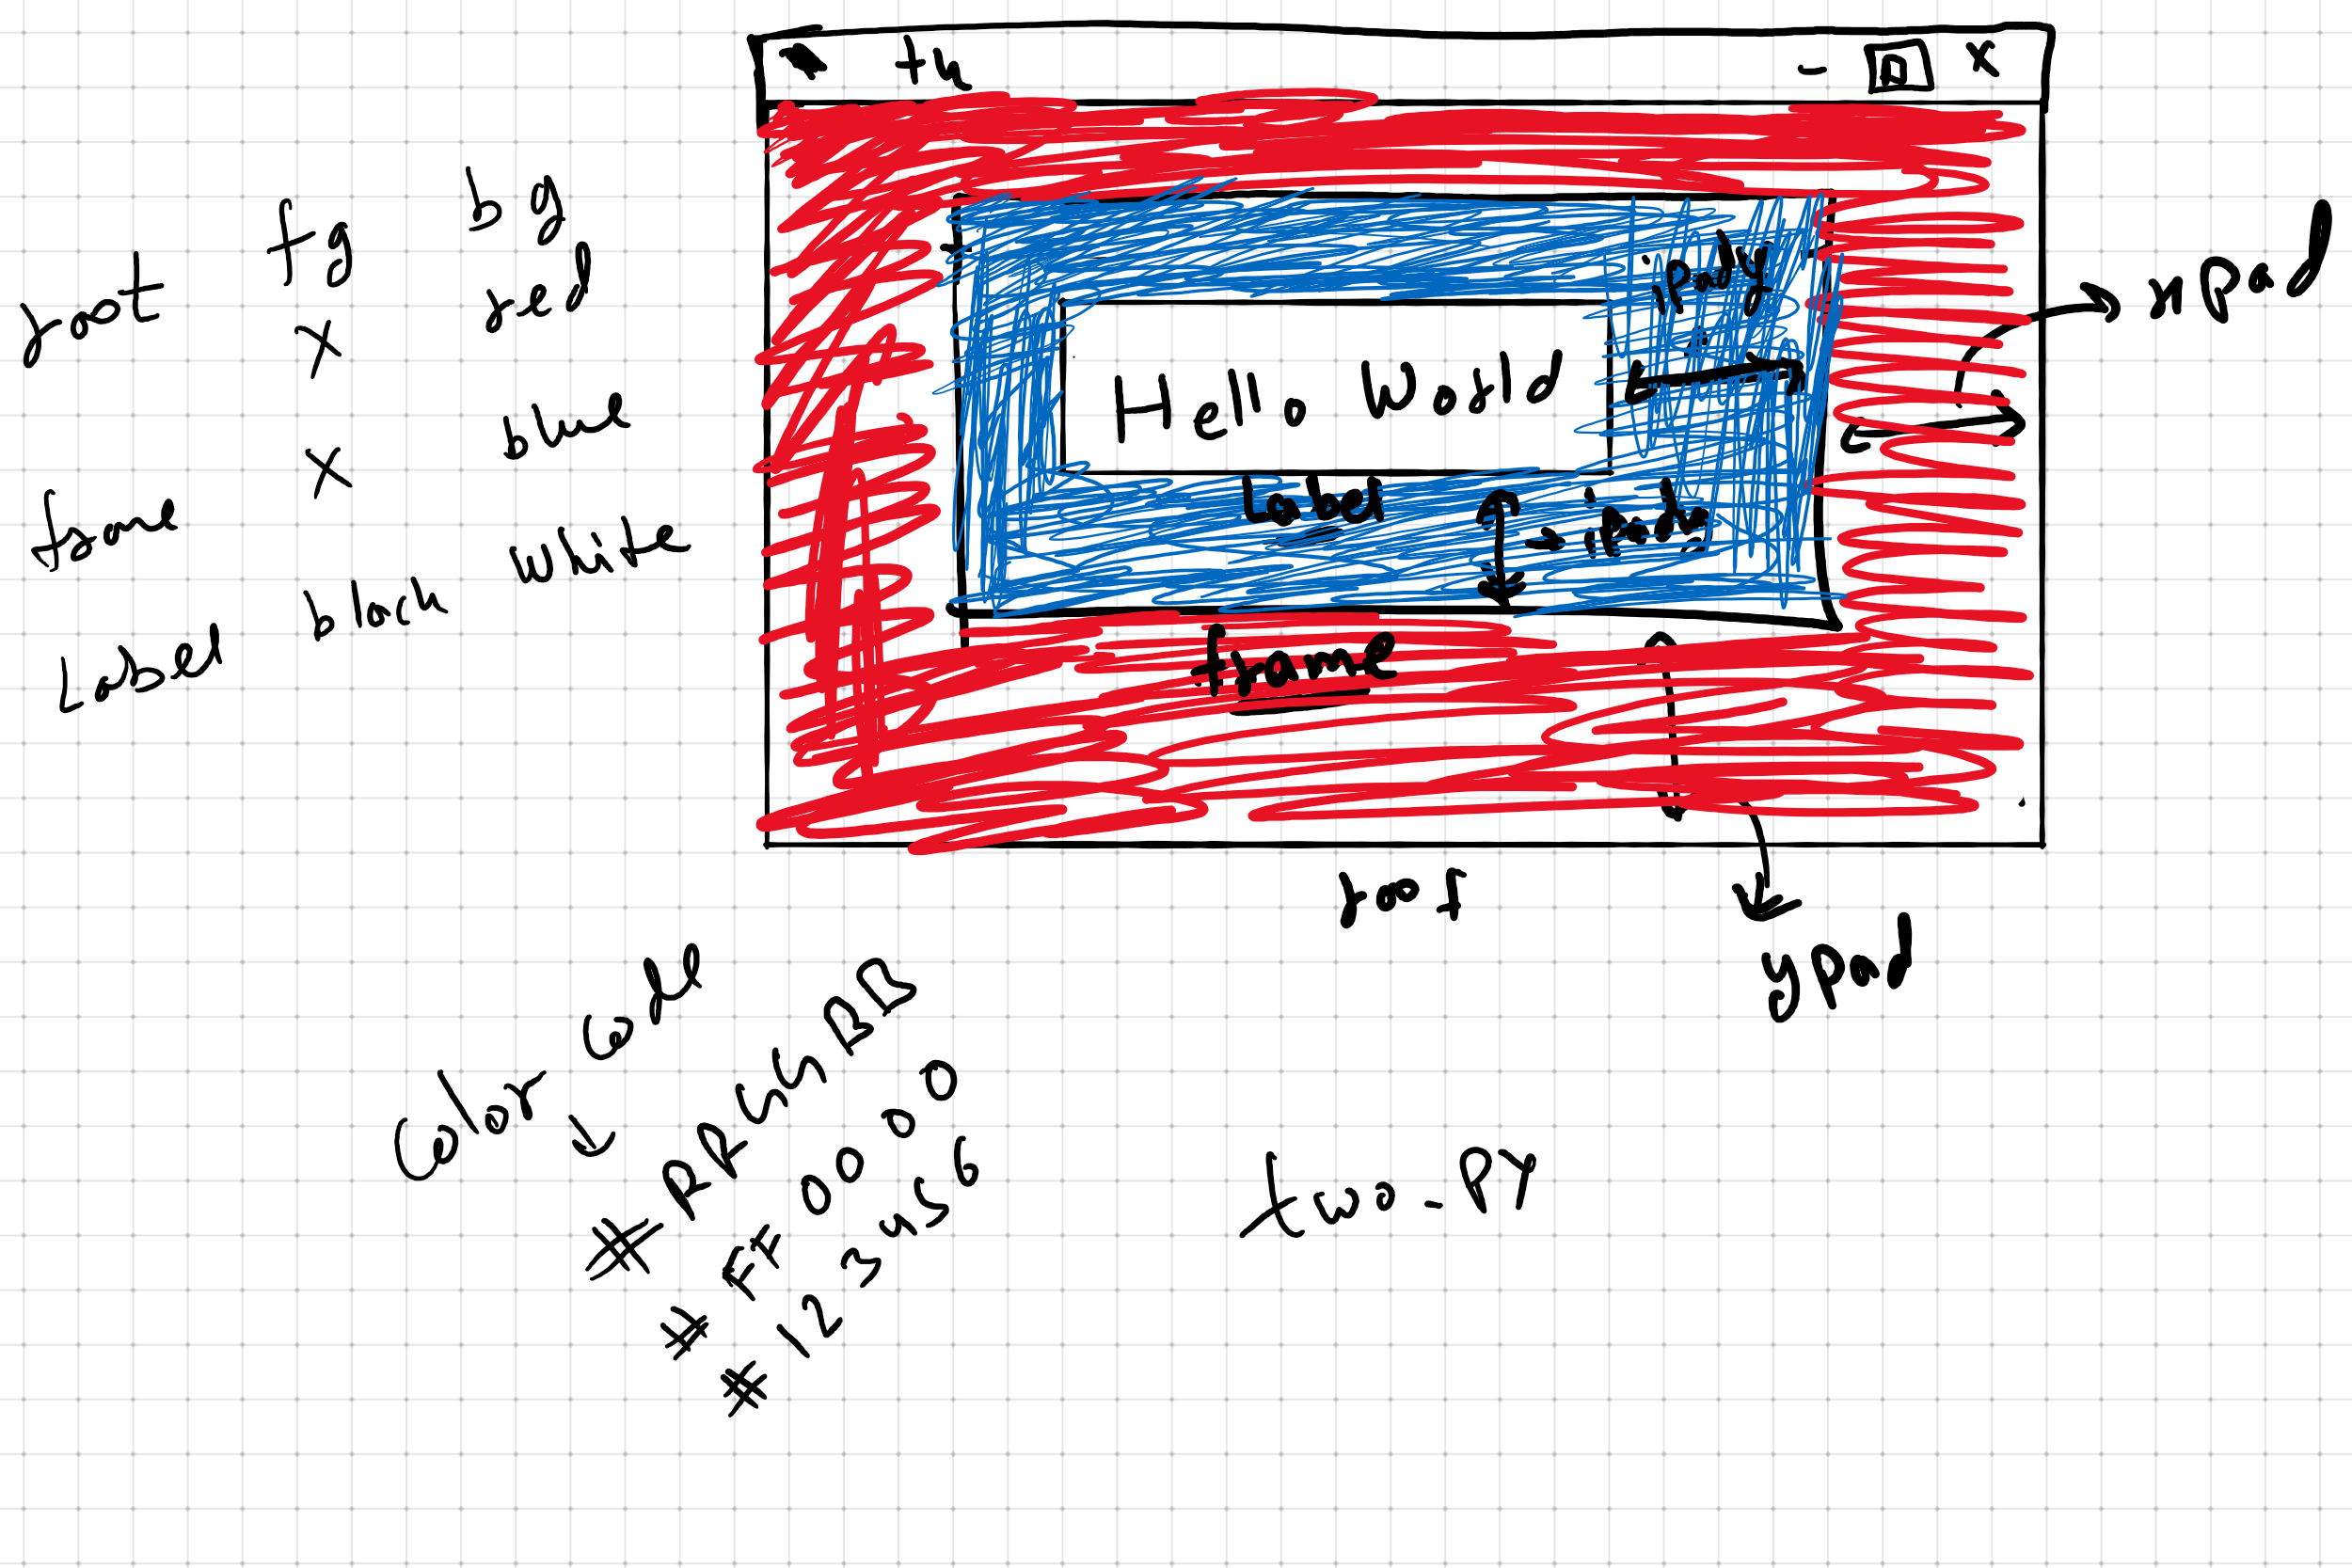 tk
- x
fg bg
root x red
frame x blue
Label black white
ipady
xpad
Hello World
Label
ipady
frame
root
ypad
Color Code
# RRGGBB
# FF0000
# 123456
two.py